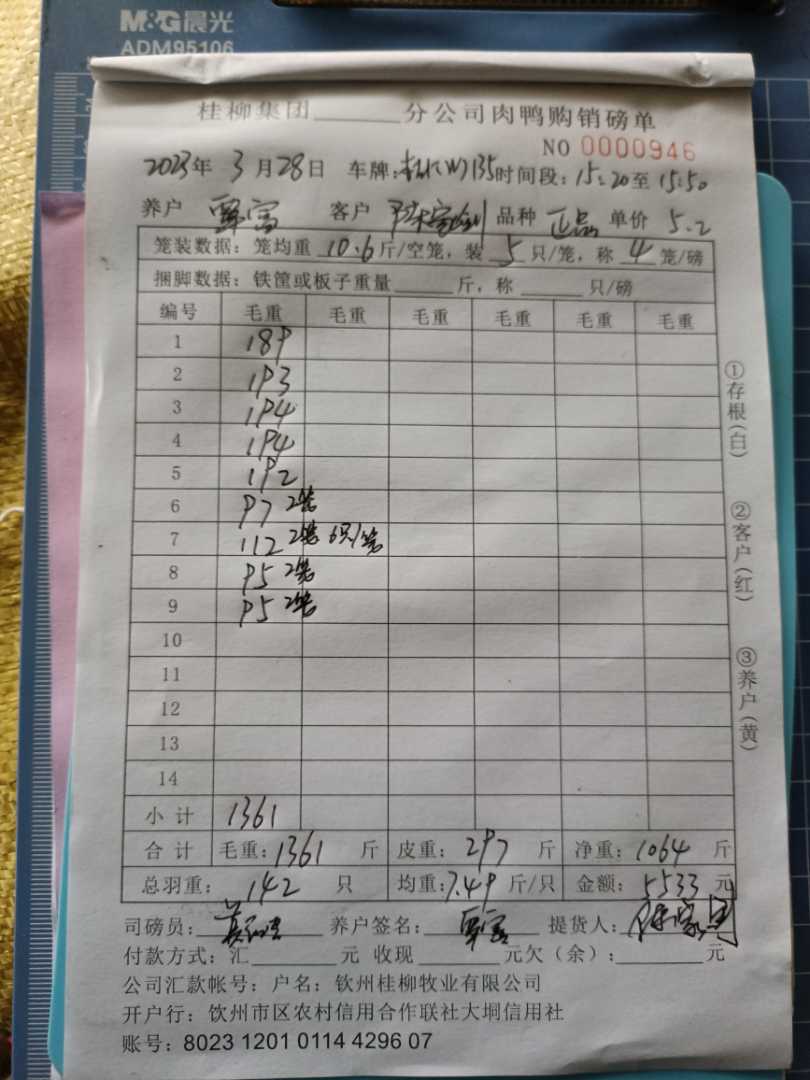 M&G晨光
ADM95106
桂柳集团______分公司肉鸭购销磅单
NO 0000946
2023年 3月28日 车牌: 135 时间段:15:20至15:50
养户 覃富 客户 品种 正品 单价 5.2
笼装数据:笼均重 10.6 斤/空笼,装 5 只/笼,称 4 笼/磅
捆脚数据:铁筐或板子重量______斤,称______只/磅
编号 毛重 毛重 毛重 毛重 毛重 毛重
1 189
2 193
3 194
4 194
5 192
6 97 2笼
7 112 2笼 6只/笼
8 95 2笼
9 95 2笼
10
11
12
13
14
小计 1361
合计 毛重:1361 斤 皮重:297 斤 净重:1064 斤
总羽重:142 只 均重:7.49 斤/只 金额:5533 元
司磅员: 养户签名:覃富 提货人:
付款方式:汇______元 收现______元欠(余):______元
公司汇款帐号:户名:钦州桂柳牧业有限公司
开户行:饮州市区农村信用合作联社大垌信用社
账号:8023 1201 0114 4296 07
①存根(白)
②客户(红)
③养户(黄)